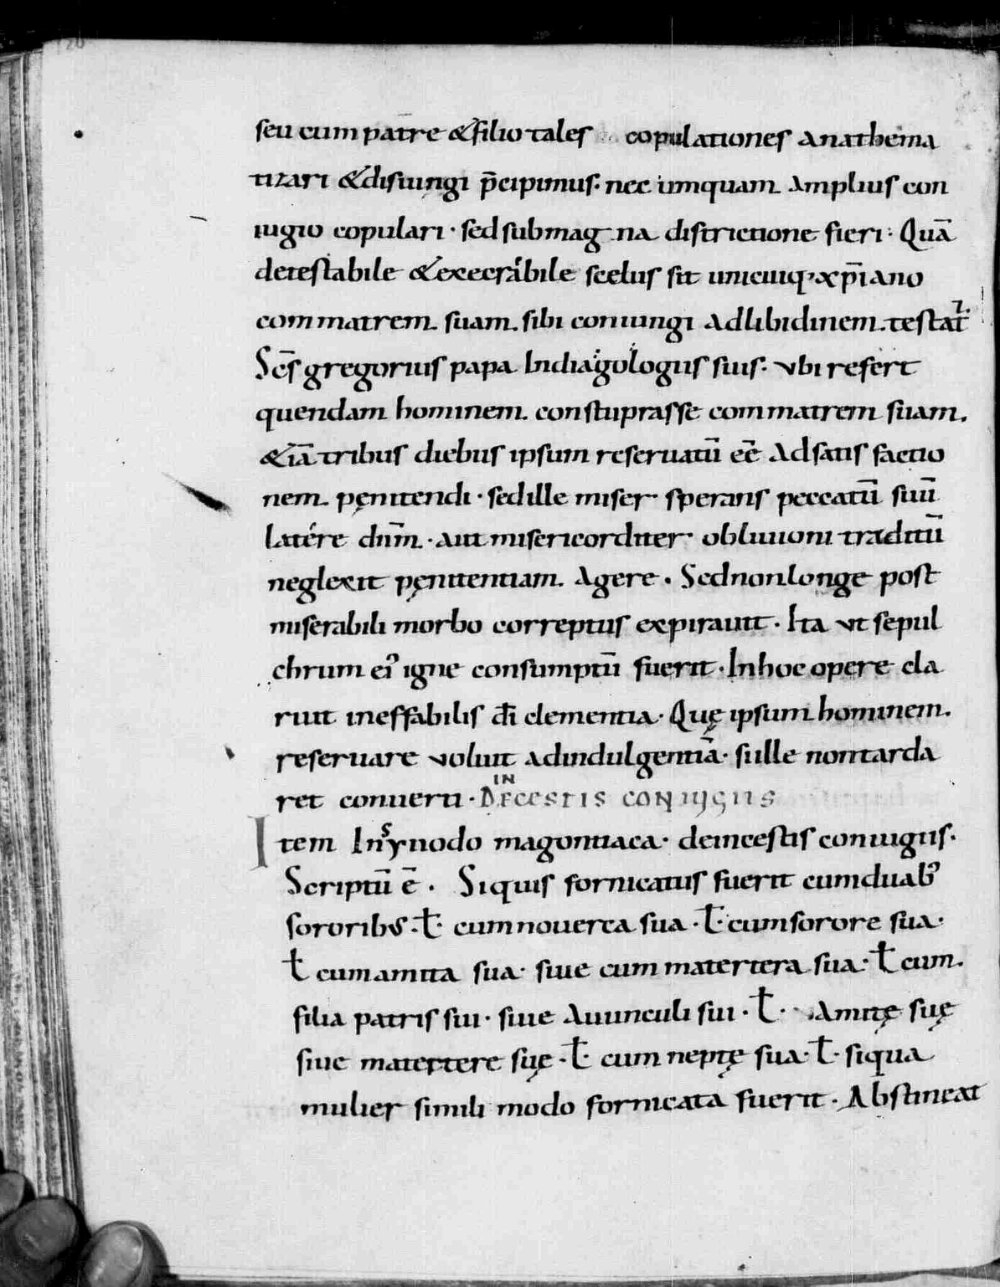 seu cum patre &filio tales copulationes anathema
tizari &disiungi p̄cipimus. nec umquam amplius con
iugio copulari · sed sub magna districtione fieri · Quā
detestabile &execrabile scelus sit unicuiq· xp̄iano
commatrem suam sibi coniungi ad libidinem. testat᷑
Sc̄s gregorius papa In diagologus suis. ubi refert
quendam hominem constuprasse commatrem suam.
&iā tribus diebus ipsum reseruatū eē ad satis factio
nem penitendi · sed ille miser sperans peccatū suū
latére dn̄m · aut misericorditer oblivioni traditū
neglexit penitentiam agere . Sed non longe post
miserabili morbo correptus expirauit . Ita ut sepul
chrum ei᾿ igne consumptū fuerit . In hoc opere cla
ruit ineffabilis dī clementia . Quę ipsum hominem.
reseruare voluit ad indulgentiā. si ille non tarda
ret conuerti . DE INCESTIS CONIUGIIS
Item In synodo magontiaca . de incestis coniugiis.
Scriptū ē . Siquis fornicatus fuerit cum duab᾿
sororibus . ł cum nouerca sua . ł cum sorore sua .
ł cum amita sua . siue cum matertera sua . ł cum.
filia patris sui . siue auunculi sui . ł . Amitę suę
siue matertere suę . ł cum neptę sua . ł . siqua
mulier simili modo fornicata fuerit . Abstineat